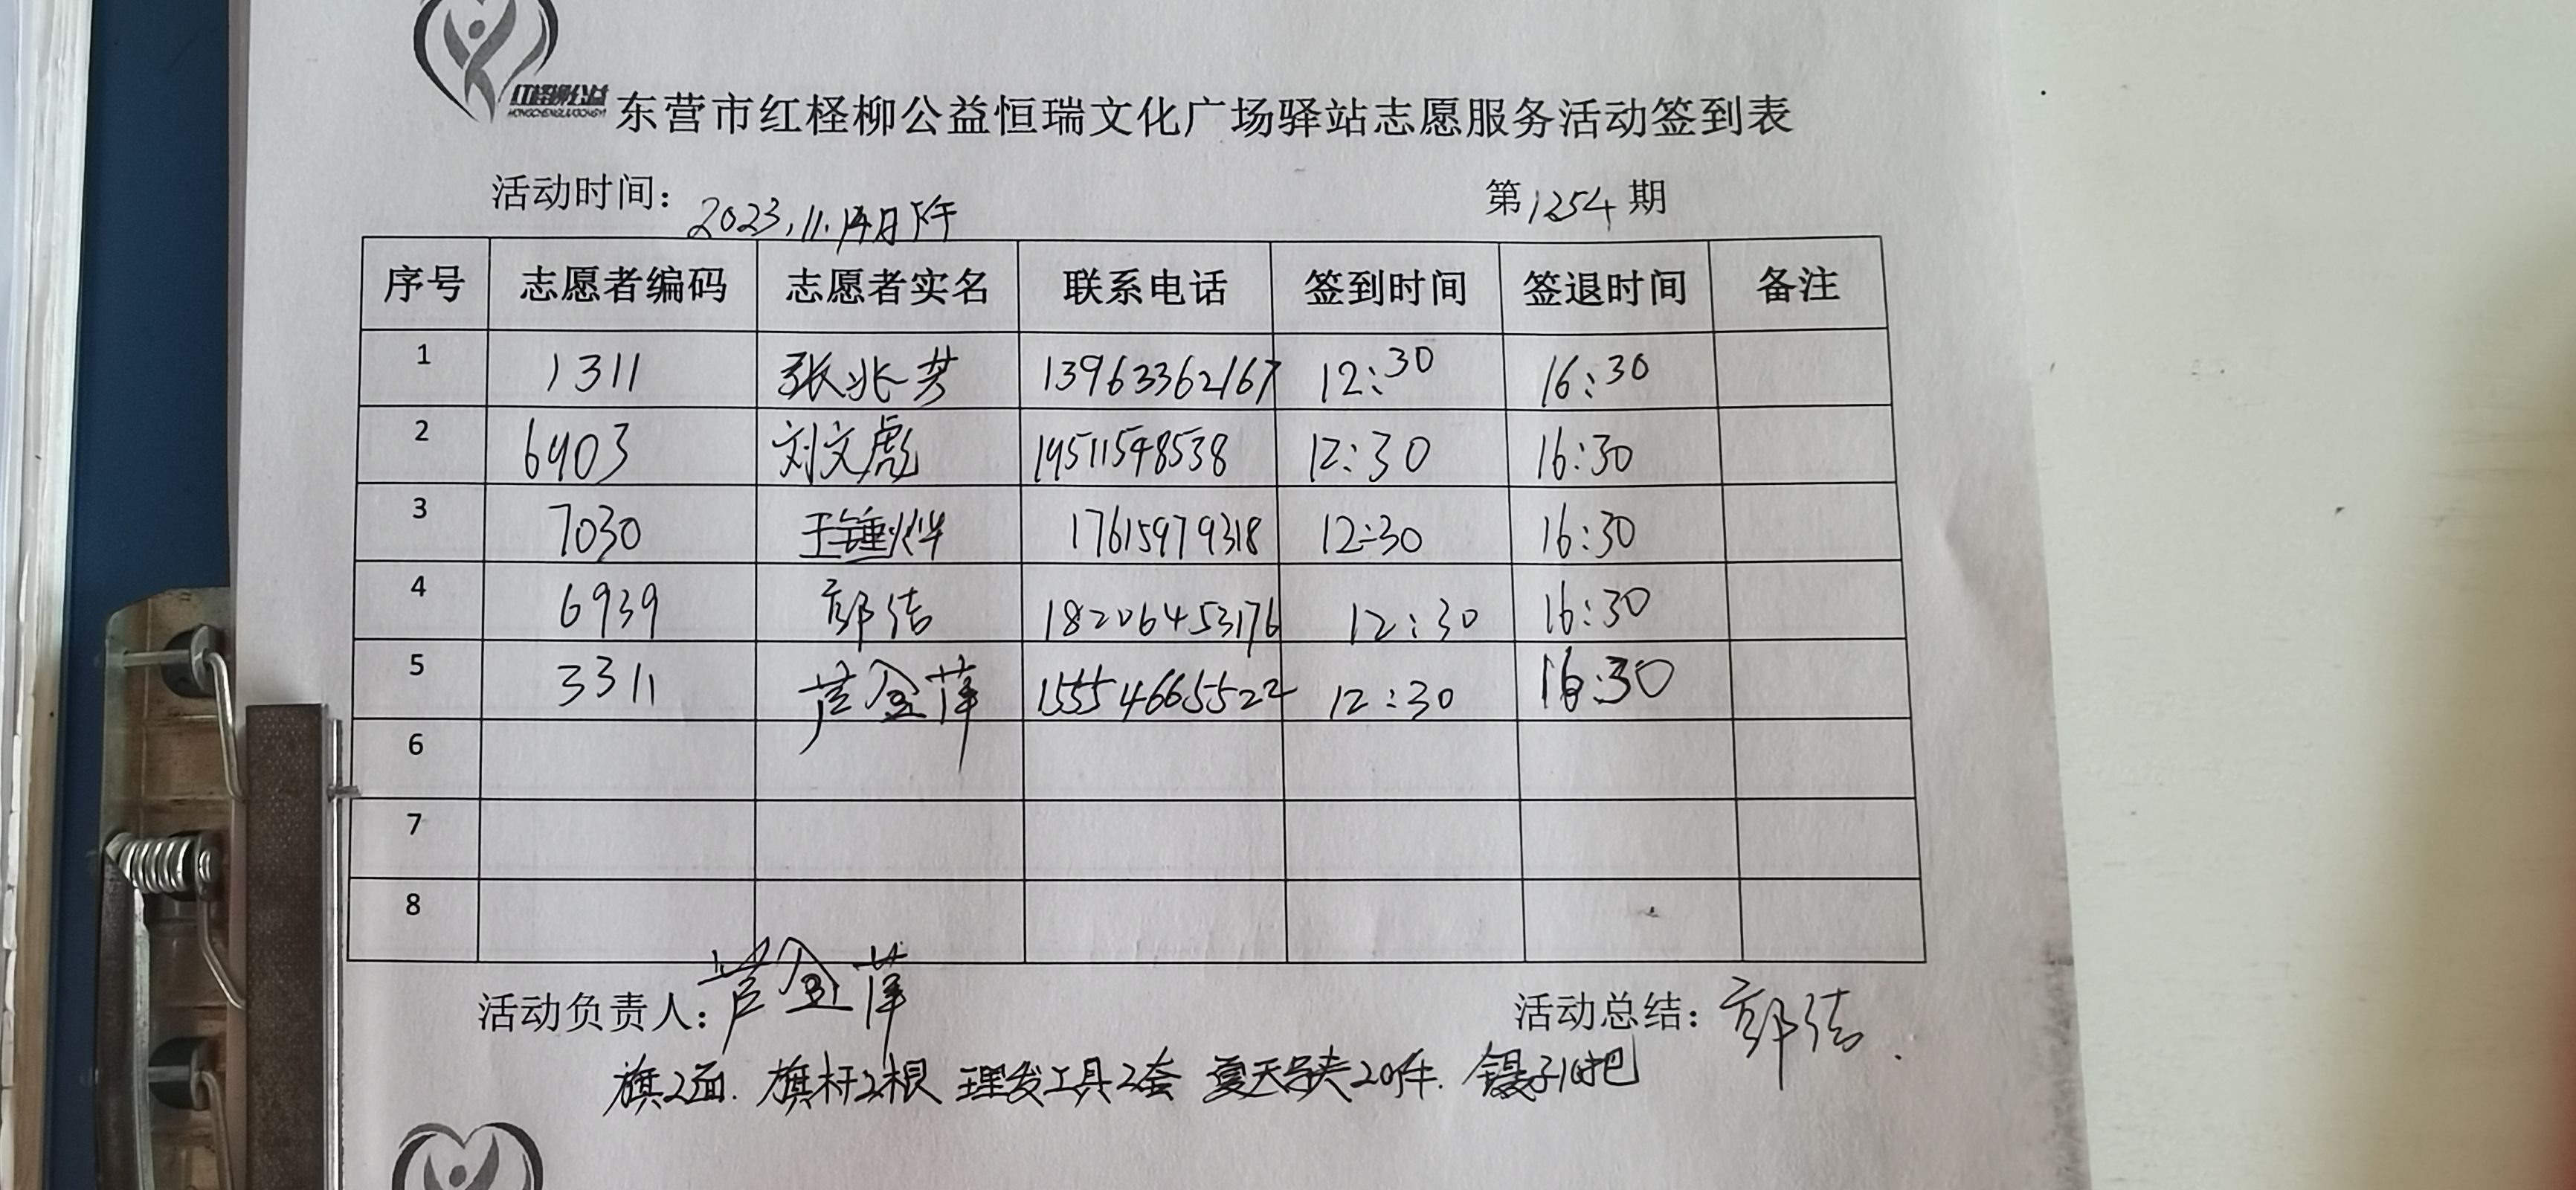 红柽柳公益
HONGCHENGLIUGONGYI
东营市红柽柳公益恒瑞文化广场驿站志愿服务活动签到表
活动时间：2023.11.14日下午 第1254期
序号 志愿者编码 志愿者实名 联系电话 签到时间 签退时间 备注
1 1311 张兆芳 13963362167 12:30 16:30
2 6903 刘文彪 19511548538 12:30 16:30
3 7030 王锤烨 17615979318 12:30 16:30
4 6939 郭洁 18206453176 12:30 16:30
5 3311 芦金萍 15554665522 12:30 16:30
6
7
8
活动负责人：芦金萍 活动总结：郭洁.
旗2面. 旗杆2根 理发工具2套 夏天马夹20件. 镊子10把